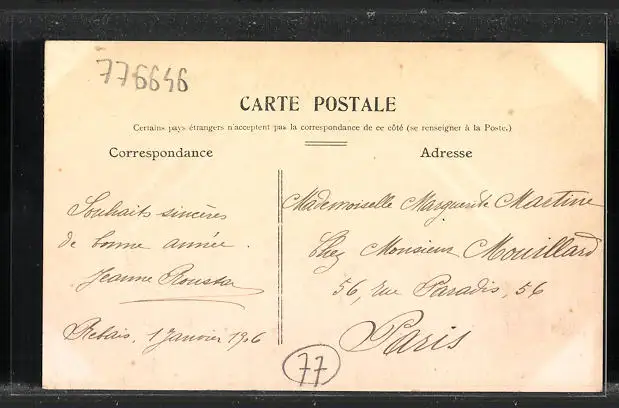 776646
CARTE POSTALE
Certains pays étrangers n'acceptent pas la correspondance de ce côté (se renseigner à la Poste.)
Correspondance
Souhaits sincères
de bonne année.
Jeanne
Rebais, 1 Janvier 1906
Adresse
Mademoiselle Marguerite Martine
Chez Monsieur Mouillard
56, rue Paradis, 56
Paris
77